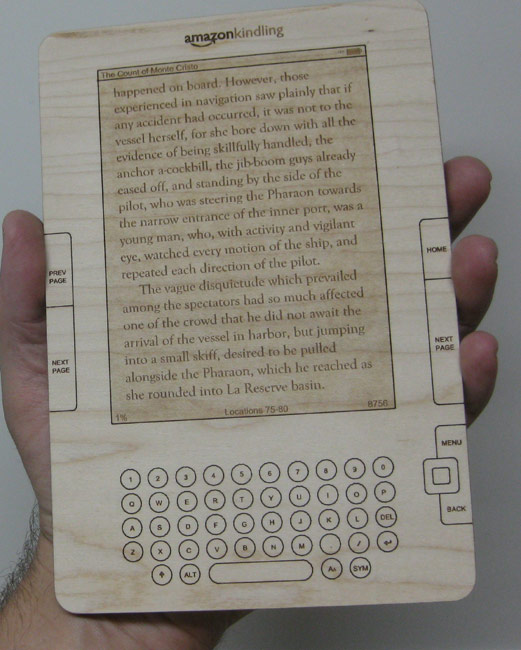 amazonkindling
The Count of Monte Cristo
happened on board. However, those
experienced in navigation saw plainly that if
any accident had occurred, it was not to the
vessel herself, for she bore down with all the
evidence of being skillfully handled, the
anchor a-cockbill, the jib-boom guys already
eased off, and standing by the side of the
pilot, who was steering the Pharaon towards
the narrow entrance of the inner port, was a
young man, who, with activity and vigilant
eye, watched every motion of the ship, and
repeated each direction of the pilot.
The vague disquietude which prevailed
among the spectators had so much affected
one of the crowd that he did not await the
arrival of the vessel in harbor, but jumping
into a small skiff, desired to be pulled
alongside the Pharaon, which he reached as
she rounded into La Reserve basin.
1% Locations 75-80 8756
PREV
PAGE
NEXT
PAGE
HOME
NEXT
PAGE
MENU
BACK
1 2 3 4 5 6 7 8 9 0
Q W E R T Y U I O P
A S D F G H J K L DEL
Z X C V B N M . / ↵
↑ ALT Aa SYM